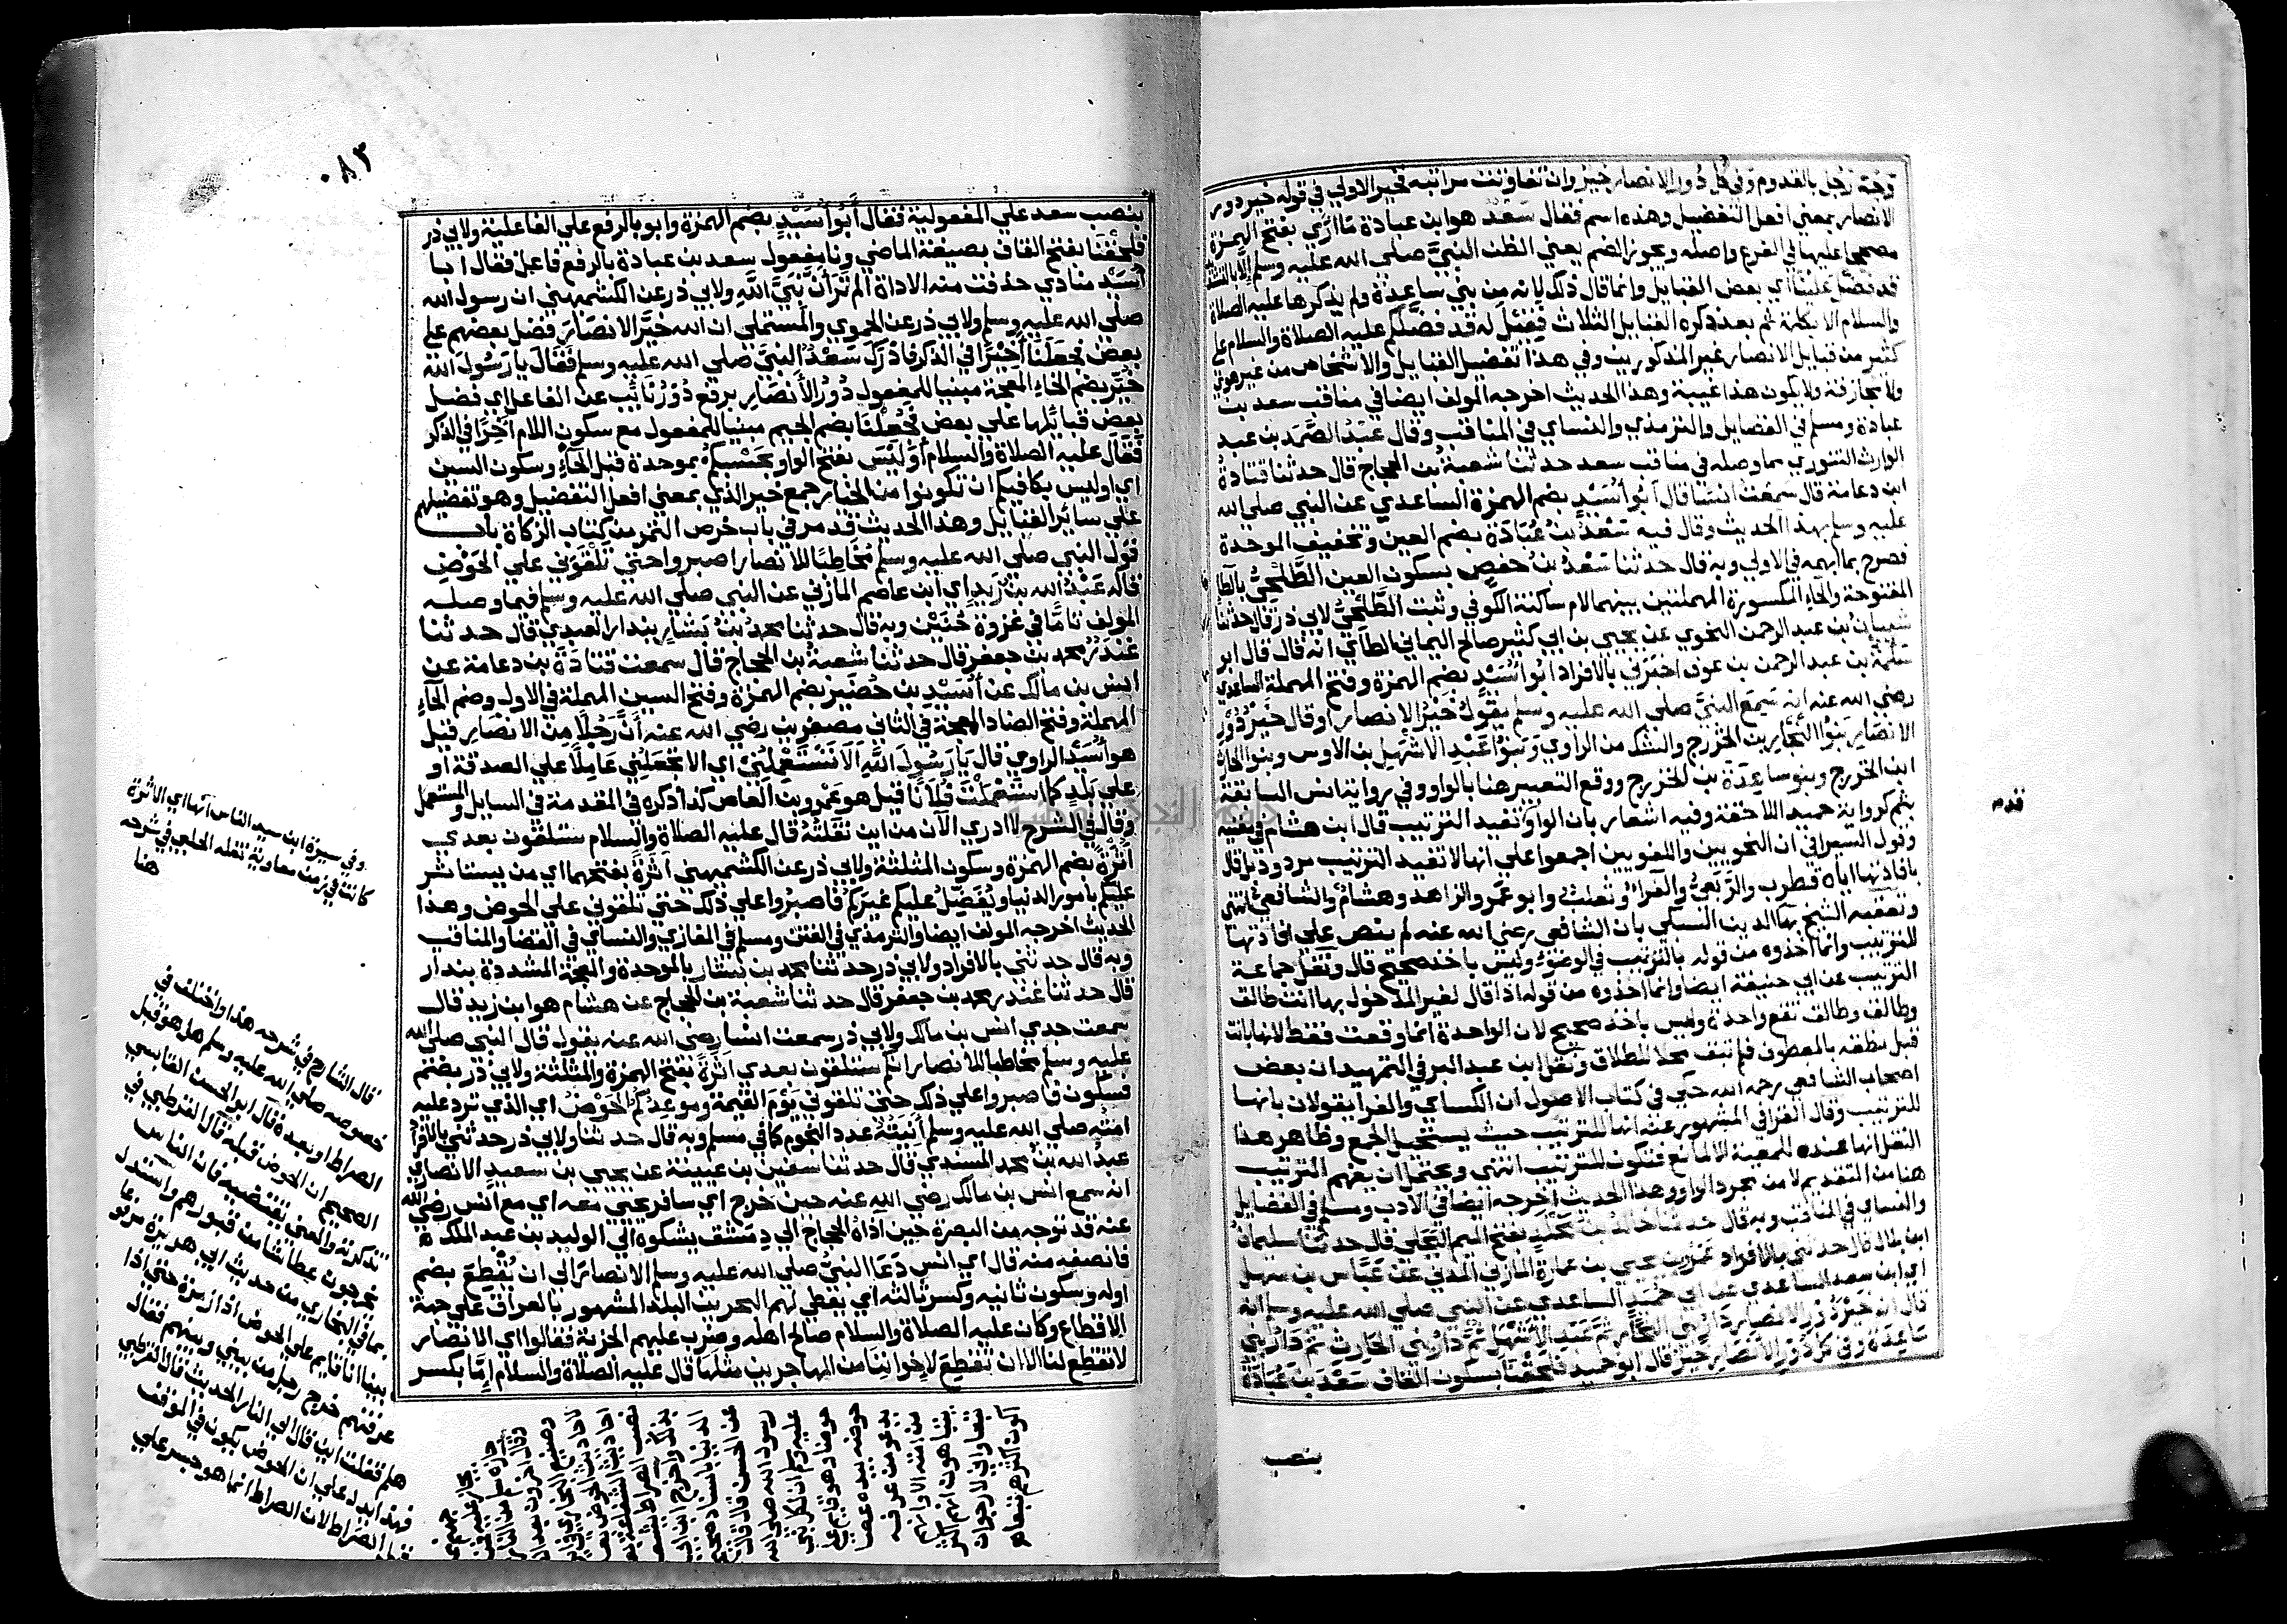 توجه رجل بالقدوم وفي كل دور الانصار خير وان تفاوتت مراتبه فخير الاولي في قوله خير دور
الانصار بمعني افعل التفضيل وهذه اسم فقال سعد هو ابن عبادة ما اري بفتح الهمزة
مصححا عليها في الفرع واصله ويجوز الضم بمعني الظن النبي صلي الله عليه وسلم الا بالتشديد
قد فضل علينا اي بعض القبايل وانما قال ذلك لانه من بني ساعدة ولم يذكرها عليه الصلاة
والسلام الا بكلمة ثم بعد ذكره القبايل الثلاث فقيل له قد فضلكم عليه الصلاة والسلام علي
كثير من قبايل الانصار غير المذكورين وفي هذا تفضيل القبايل والاشخاص من غير هوي
ولا مجازفة ولا يكون هذا غيبة وهذا الحديث اخرجه المولف ايضا في مناقب سعد بن
عبادة ومسلم في الفضايل والترمذي والنساي في المناقب وقال عبد الصمد بن عبد
الوارث التنوري مما وصله في مناقب سعد حدثنا شعبة بن الحجاج قال حدثنا قتادة
ابن دعامة قال سمعت انسا قال ابو أسيد بضم الهمزة الساعدي عن النبي صلي الله
عليه وسلم بهذا الحديث وقال فيه سعد بن عبادة بضم العين وتخفيف الموحدة
فصرح بما ابهمه في الاولي وبه قال حدثنا سعد بن حفص بسكون العين الطلحي بالطا
المفتوحة والحاء المكسورة المهملتين بينهما لام ساكنة الكوفي وثبت الطلحي لابي ذر قال حدثنا
شيبان بن عبد الرحمن النحوي عن يحيي بن ابي كثير صالح اليماني الطاي انه قال قال ابو
سلمة بن عبد الرحمن بن عوف اخبرني بالافراد ابو أسيد بضم الهمزة وفتح المهملة الساعدي
رضي الله عنه انه سمع النبي صلي الله عليه وسلم يقول خير الانصار او قال خير دور
الانصار بنوا النجار بن الخزرج والشك من الراوي وبنوا عبد الاشهل بن الاوس وبنو الحارث
ابن الخزرج وبنو ساعدة بن الخزرج ووقع التعبير هنا بالواو وفي رواية انس السابقة
بثم كرواية حميد اللاحقة وفيه اشعار بان الواو تفيد الترتيب قال ابن هشام في مغنيه
وقول السيرافي ان النحويين واللغويين اجمعوا علي انها لا تفيد الترتيب مردود بل قال
بافادتها اياه قطرب والربعي والفراء وثعلب وابو عمر والزاهد وهشام والشافعي انتهي
وتعقبه الشيخ بهاالدين السبكي بان الشافعي رضي الله عنه لم ينص علي افادتها
للترتيب وانما اخذوه من قوله بالترتيب في الوضوء وليس باخذ صحيح قال ونقل جماعة
الترتيب عن ابي حنيفة ايضا وانما اخذوه من قوله اذا قال لغير المدخول بها انت طالق
وطالق وطالق تقع واحدة وليس باخذ صحيح لان الواحدة انما وقعت فقط لانها بانت
قبل نطقه بالمعطوف فلم تبق محلا للطلاق ونقل ابن عبد البر في التمهيد ان بعض
اصحاب الشافعي رحمه الله حكي في كتاب الاصول ان الكساي والفرا يقولان بانها
للترتيب وقال الفرا في المشهور عنه انها للترتيب حيث يستحيل الجمع وظاهر هذا
النقل انها عنده للمعية الا لمانع فتكون للترتيب انتهي ويحتمل ان يفهم الترتيب
هنا من التقديم لا من مجرد الواو وهذا الحديث اخرجه ايضا في الادب ومسلم في الفضايل
والنساي في المناقب وبه قال حدثنا خالد بن مخلد بفتح الميم البجلي قال حدثنا سليمان
ابن بلال قال حدثني بالافراد عمرو بن يحيي بن عمارة المازني المدني عن عباس بن سهل
اي ابن سعد الساعدي عن ابي حميد الساعدي عن النبي صلي الله عليه وسلم انه
قال ان خير دور الانصار دار بني النجار ثم عبد الاشهل ثم دار بني الحارث ثم دار بني
ساعدة وفي كل دور الانصار خير قال ابو حميد فلحقنا بسكون القاف سعد بن عبادة
بنصب
قدم
٠٨٣
بنصب سعد علي المفعولية فقال أبو أسيد بضم الهمزة وابو بالرفع علي الفاعلية ولابي ذر
فلحقنا بفتح القاف بصيغة الماضي ونا مفعول سعد بن عبادة بالرفع فاعل فقال ابا
أسيد منادي حذفت منه الاداة الم تر أن نبي الله ولابي ذر عن الكشميهني ان رسول الله
صلي الله عليه وسلم ولابي ذر عن الحموي والمستملي ان الله خير الانصار فضل بعضهم علي
بعض فجعلنا أخيرا في الذكر فادرك سعد النبي صلي الله عليه وسلم فقال يا رسول الله
خير بضم الخاء المعجمة مبنيا للمفعول دور الأنصار برفع دور نائب عن الفاعل اي فضل
بعض قبائلها علي بعض فجعلنا بضم الجيم مبنيا للمفعول مع سكون اللام آخرا في الذكر
فقال عليه الصلاة والسلام أوليس بفتح الواو بحسبكم بموحدة قبل الحاء وسكون السين
اي اوليس بكافيكم ان تكونوا من الخيار جمع خير الذي بمعني افعل التفضيل وهو تفضيلهم
علي سائر القبايل وهذا الحديث قد مر في باب خرص التمر من كتاب الزكاة باب
قول النبي صلي الله عليه وسلم مخاطبا للانصار اصبروا حتي تلقوني علي الحوض
قاله عبد الله بن زيد اي ابن عاصم المازني عن النبي صلي الله عليه وسلم فيما وصله
المولف تاما في غزوة حنين وبه قال حدثنا محمد بن بشار بندار العبدي قال حدثنا
غندر محمد بن جعفر قال حدثنا شعبة بن الحجاج قال سمعت قتادة بن دعامة عن
انس بن مالك عن أسيد بن حضير بضم الهمزة وفتح السين المهملة في الاول وضم الحاء
المهملة وفتح الضاد المعجمة في الثاني مصغرين رضي الله عنه أن رجلا من الانصار قيل
هو أسيد الراوي قال يا رسول الله ألا تستعملني اي الا تجعلني عاملا علي الصدقة او
علي بلد كما استعملت فلانا قيل هو عمرو بن العاص كذا ذكره في المقدمة في السايل والمستعمل
وقال في الشرح لا ادري الآن من اين نقلته قال عليه الصلاة والسلام ستلقون بعدي
أثرة بضم الهمزة وسكون المثلثة ولابي ذر عن الكشميهني أثرة بفتحهما اي من يستاثر
عليكم بامور الدنيا ويفضل عليكم غيركم فاصبروا علي ذلك حتي تلقوني علي الحوض وهذا
الحديث اخرجه المولف ايضا والترمذي في الفتن ومسلم في المغازي والنساي في القضا والمناقب
وبه قال حدثني بالافراد ولابي ذر حدثنا محمد بن بشار بالموحدة والمعجمة المشددة بندار
قال حدثنا غندر محمد بن جعفر قال حدثنا شعبة بن الحجاج عن هشام هو ابن زيد قال
سمعت جدي انس بن مالك ولابي ذر سمعت انسا رضي الله عنه يقول قال النبي صلي الله
عليه وسلم مخاطبا للانصار انكم ستلقون بعدي أثرة بفتح الهمزة والمثلثة ولابي ذر بضم
فسكون فاصبروا علي ذلك حتي تلقوني يوم القيمة وموعدكم الحوض اي الذي ترد عليه
امته صلي الله عليه وسلم آنيته عدد النجوم كما في مسلم وبه قال حدثنا ولابي ذر حدثني بالافراد
عبد الله بن محمد المسندي قال حدثنا سفين بن عيينة عن يحيي بن سعيد الانصاري
انه سمع انس بن مالك رضي الله عنه حين خرج اي سافر يحيي معه اي مع انس رضي الله
عنه قد توجه من البصرة حين آذاه الحجاج الي دمشق يشكوه الي الوليد بن عبد الملك
فانصفه منه قال اي انس دعا النبي صلي الله عليه وسلم الانصار الي ان يقطع بضم
اوله وسكون ثانيه وكسر ثالثه اي يعطي لهم البحرين البلد المشهور بالعراق علي جهة
الاقطاع وكان عليه الصلاة والسلام صالح اهله وضرب عليهم الجزية فقالوا اي الانصار
لا تقطع لنا الا ان تقطع لاخواننا من المهاجرين مثلها قال عليه الصلاة والسلام إما بكسر
وفي سيرة ابن سيد الناس انها اي الاثرة
كانت في زمن معاوية نقله الحلبي في شرحه
هنا
قال الشارح في شرحه هذا واختلف في
حوضه صلي الله عليه وسلم هل هو قبل
الصراط او بعده قال ابو الحسن القابسي
الصحيح ان الحوض قبله قال القرطبي في
تذكرته والمعني يقتضيه فان الناس
يخرجون عطاشا من قبورهم واستدل
بما في البخاري من حديث ابي هريرة مرفوعا
بينا انا قايم علي الحوض اذا زمرة حتي اذا
عرفتهم خرج رجل من بيني وبينهم فقال
هلم فقلت اين قال الي النار الحديث قال القرطبي
فهذا يدل علي ان الحوض يكون في الموقف
قبل الصراط لان الصراط انما هو جسر علي